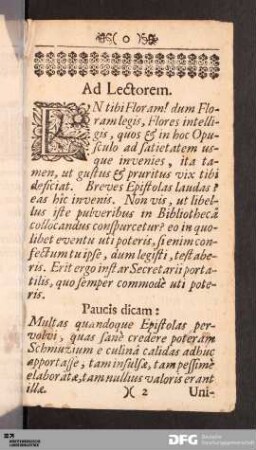 ( o )
Ad Lectorem.
EN tibi Floram! dum Flo-
ram legis, Flores intelli-
gis, quos & in hoc Opu-
sculo ad satietatem us-
que invenies, ita ta-
men, ut gustus & pruritus vix tibi
deficiat. Breves Epistolas laudas?
eas hic invenis. Non vis, ut libel-
lus iste pulveribus in Bibliothecâ
collocandus conspurcetur? eo in quo-
libet eventu uti poteris, si enim con-
fectum tu ipse, dum legisti, testabe-
ris. Erit ergo instar Secretarii porta-
tilis, quo semper commodè uti pote-
ris.
Paucis dicam:
Multas quandoque Epistolas per-
volvi, quas sanè credere poteram
Schmuzium e culinâ calidas adhuc
apportasse, tam insulsæ, tam pessimè
elaboratæ, tam nullius valoris erant
illæ. )( 2 Uni-
DFG Deutsche
Forschungsgemeinschaft